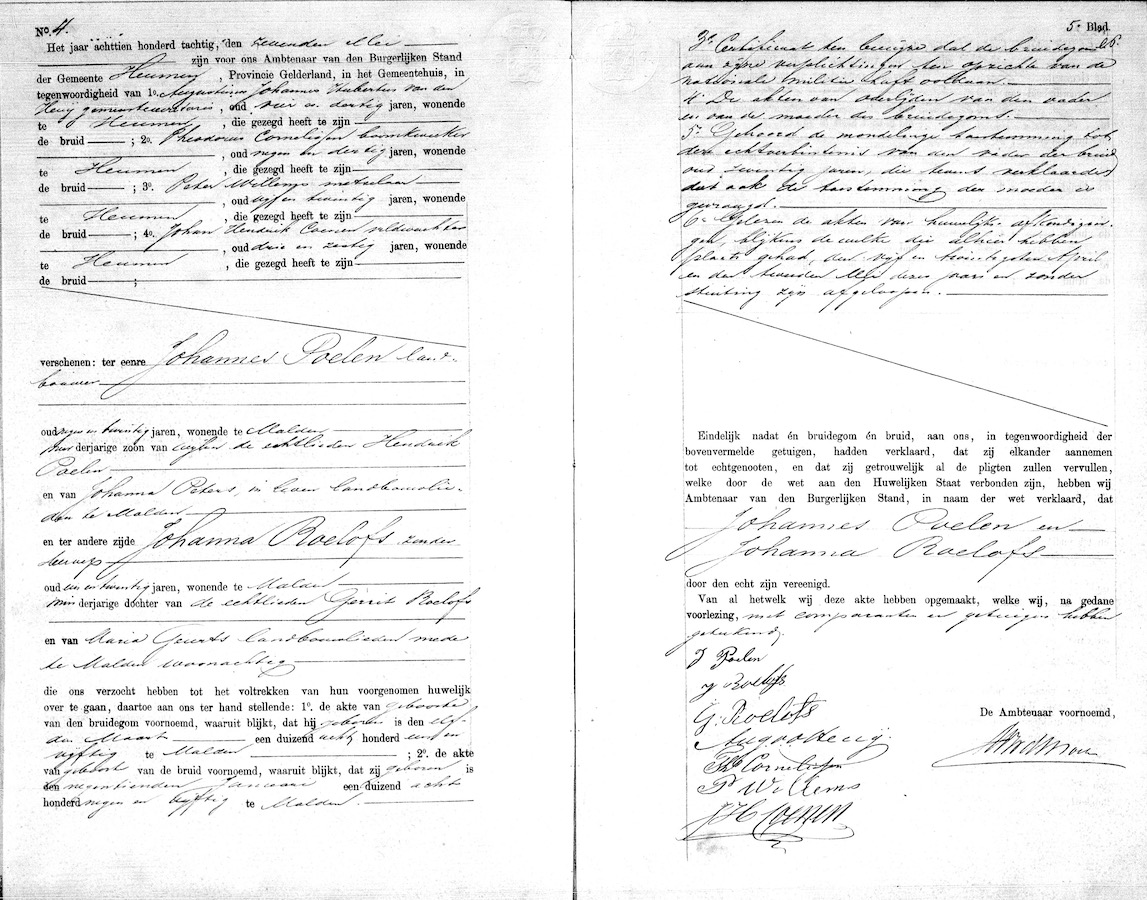 No. 4.
Het jaar achttien honderd tachtig, den zevenden Mei
zijn voor ons Ambtenaar van den Burgerlijken Stand
der Gemeente Heumen, Provincie Gelderland, in het Gemeentehuis, in
tegenwoordigheid van 1o. Augustinus Johannes Hubertus van den
Heuij gemeentesecretaris, oud vier en dertig jaren, wonende
te Heumen, die gezegd heeft te zijn
de bruid ; 2o. Theodorus Cornelissen boomkweeker
, oud negen en dertig jaren, wonende
te Heumen, die gezegd heeft te zijn
de bruid ; 3o. Peter Willems metselaar
, oud vijf en twintig jaren, wonende
te Heumen, die gezegd heeft te zijn
de bruid ; 4o. Johan Hendrik Coenen veldwachter
, oud drie en zestig jaren, wonende
te Heumen, die gezegd heeft te zijn
de bruid ;
verschenen: ter eenre Johannes Poelen land-
bouwer
oud negen en twintig jaren, wonende te Malden
meerderjarige zoon van wijlen de echtlieden Hendrik
Poelen
en van Johanna Peters, in leven landbouwlie-
den te Malden
en ter andere zijde Johanna Roelofs zonder
beroep
oud een en twintig jaren, wonende te Malden
minderjarige dochter van de echtlieden Gerrit Roelofs
en van Maria Geurts landbouwlieden mede
te Malden woonachtig
die ons verzocht hebben tot het voltrekken van hun voorgenomen huwelijk
over te gaan, daartoe aan ons ter hand stellende: 1o. de akte van geboorte
van den bruidegom voornoemd, waaruit blijkt, dat hij geboren is den elf-
den Maart een duizend acht honderd een en
vijftig te Malden ; 2o. de akte
van geboorte van de bruid voornoemd, waaruit blijkt, dat zij geboren is
den negentienden Januari een duizend acht
honderd negen en vijftig te Malden.
5e Blad.
3o Certificaat ten bewijze dat de bruidegom
aan zijne verplichtingen ten opzichte van de
nationale militie heeft voldaan.
4o De akten van overlijden van den vader
en van de moeder des bruidegoms.
5o Gehoord de mondelinge toestemming tot
deze echtverbintenis van den vader der bruid
oud zeventig jaren, die tevens verklaarde
dat ook de toestemming der moeder is
gevraagd.
6o de akten van huwelijks afkondigin-
gen, blijkens de welke die alhier hebben
plaats gehad, den vijf en twintigsten April
en den tweeden Mei dezes jaars en zonder
stuiting zijn afgeloopen.
Eindelijk nadat én bruidegom én bruid, aan ons, in tegenwoordigheid der
bovenvermelde getuigen, hadden verklaard, dat zij elkander aannemen
tot echtgenooten, en dat zij getrouwelijk al de pligten zullen vervullen,
welke door de wet aan den Huwelijken Staat verbonden zijn, hebben wij
Ambtenaar van den Burgerlijken Stand, in naam der wet verklaard, dat
Johannes Poelen en
Johanna Roelofs
door den echt zijn vereenigd.
Van al hetwelk wij deze akte hebben opgemaakt, welke wij, na gedane
voorlezing, met comparanten en getuigen hebben
geteekend.
J Poelen
J Roelofs
G. Roelofs
De Ambtenaar voornoemd,
Th Cornelissen
P Willems
JH Coenen